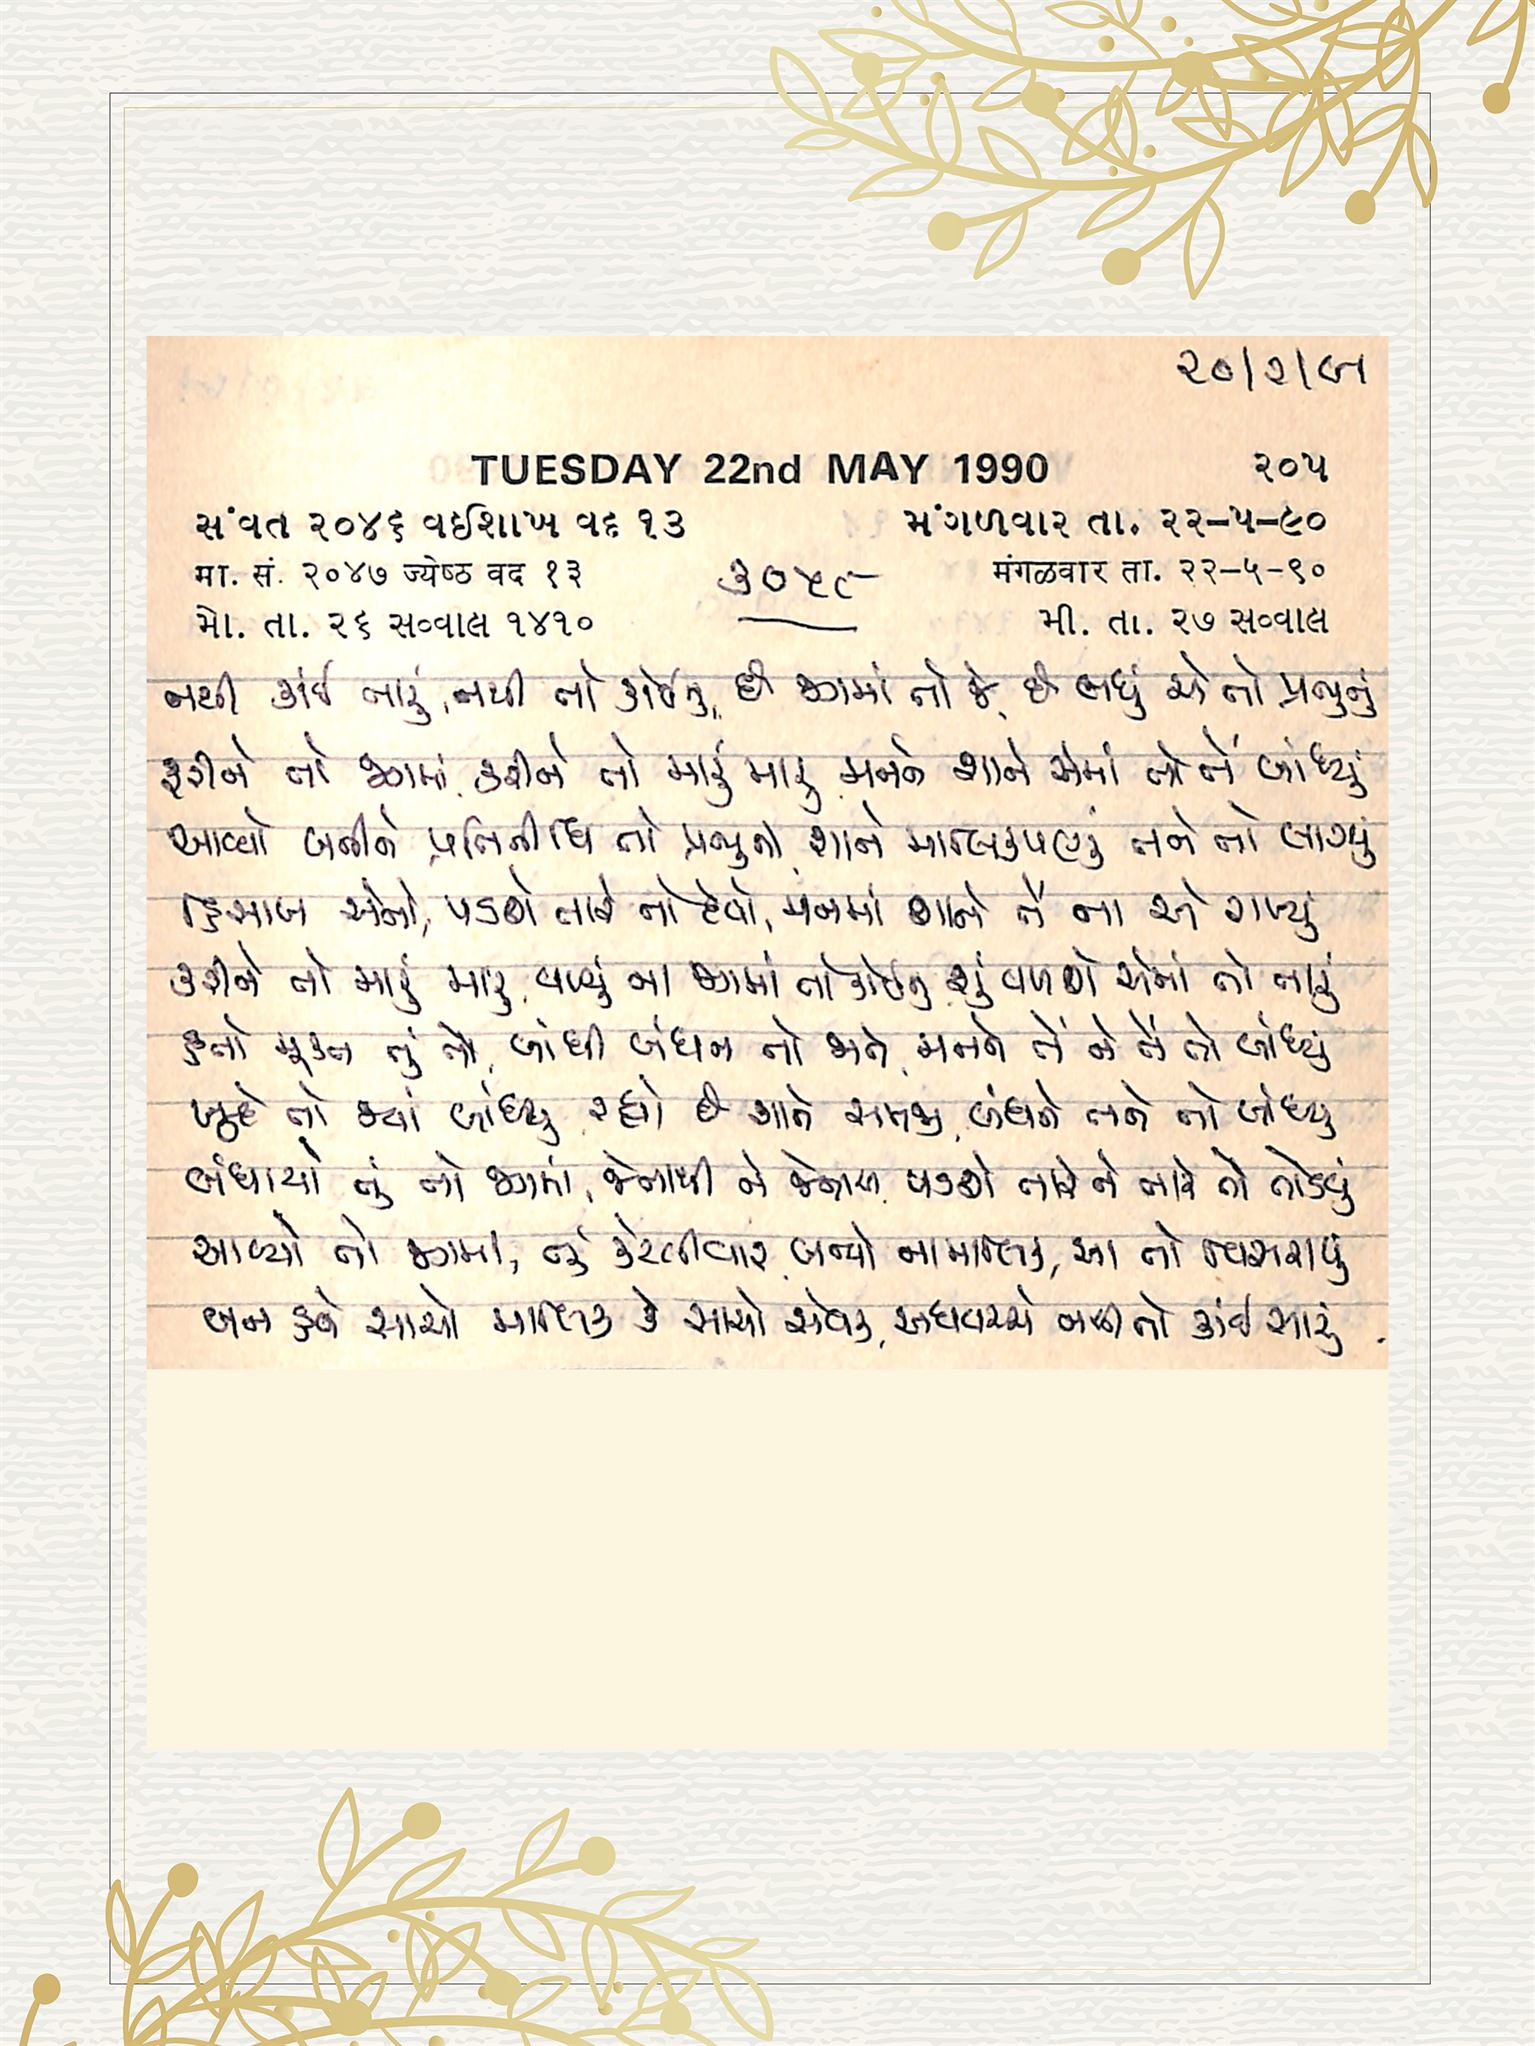 TUESDAY 22nd MAY 1990 ૨૦૫
સંવત ૨૦૪૬ વઇશાખ વદ ૧૩ મંગળવાર તા. ૨૨-૫-૯૦
मा. सं. २०४७ ज्येष्ठ वद १३ ૩૦૫૯ मंगळवार ता. २२-५-९०
મો. તા. ૨૬ સવ્વાલ ૧૪૧૦ મી. તા. ૨૭ સવ્વાલ
નથી કાંઈ તારું, નથી તો કોઈનું, છે જગમાં તો જે, છે બધું એ તો પ્રભુનું
કરીને તો જગમાં, કરીને તો મારું મારું મનને શાને એમાં તો તેં બાંધ્યું
આવ્યો બનીને પ્રતિનીધિ તો પ્રભુનો, શાને માલિકપણું તને તો લાગ્યું
હિસાબ એનો, પડશે તારે તો દેવો, મનમાં શાને તેં ના એ રાખ્યું
કરીને તો મારું મારું, વળ્યું ના જગમાં તો કોઈનું શું વળશે એમાં તો તારું
હતો મૂક્ત તું તો, બાંધી બંધન તો જાતે, મનને તેં ને તેં તો બાંધ્યું
ખુદે તો જ્યાં બાંધ્યું રહ્યો છે શાને સમજી, બંધને તને તો બાંધ્યું
બંધાયો તું તો જગમાં, જેનાથી ને જેનાથી, પડશે તારે ને તારે તો તોડવું
આવ્યો તો જગમાં, તું કેટલીવાર બન્યો ના માલિક, આ તો વિસરાયું
બન હવે સાચો માલિક કે સાચો સેવક, અધવચ્ચે નથી તો કાંઈ સારું.